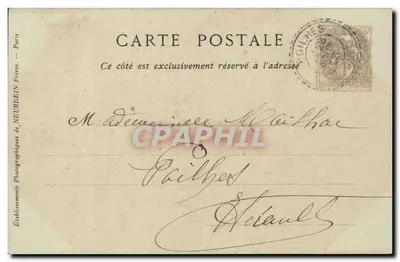 CARTE POSTALE
Ce côté est exclusivement réservé à l'adresse
POILHES
Mademoiselle Meilhac
CPARHIL
Poilhes
Hérault
Établissements Photographiques de NEURDEIN Frères. — Paris